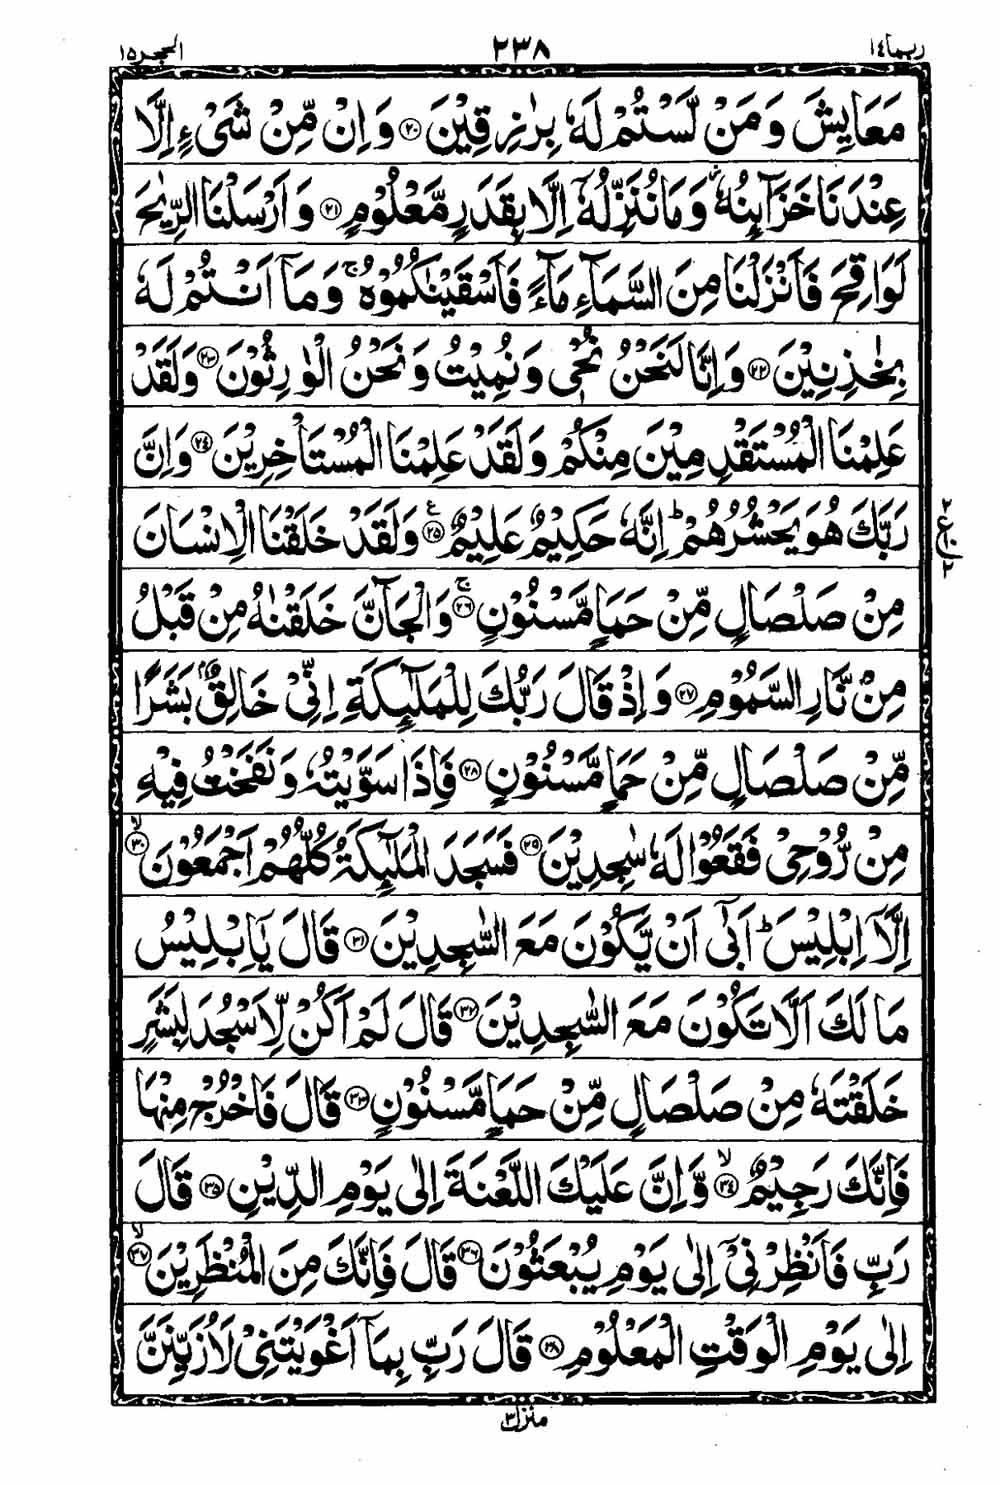 ربما ١٤
٢٣٨
الحجر ١٥
مَعَايِشَ وَمَنْ لَّسْتُمْ لَهٗ بِرٰزِقِيْنَ ﴿٢٠﴾ وَاِنْ مِّنْ شَىْءٍ اِلَّا
عِنْدَنَا خَزَآئِنُهٗ ۡ وَمَا نُنَزِّلُهٗٓ اِلَّا بِقَدَرٍ مَّعْلُوْمٍ ﴿٢١﴾ وَاَرْسَلْنَا الرِّيٰحَ
لَوَاقِحَ فَاَنْزَلْنَا مِنَ السَّمَآءِ مَآءً فَاَسْقَيْنٰكُمُوْهُ ۚ وَمَآ اَنْتُمْ لَهٗ
بِخٰزِنِيْنَ ﴿٢٢﴾ وَاِنَّا لَنَحْنُ نُحْىٖ وَنُمِيْتُ وَنَحْنُ الْوٰرِثُوْنَ ﴿٢٣﴾ وَلَقَدْ
عَلِمْنَا الْمُسْتَقْدِمِيْنَ مِنْكُمْ وَلَقَدْ عَلِمْنَا الْمُسْتَاْخِرِيْنَ ﴿٢٤﴾ وَاِنَّ
رَبَّكَ هُوَ يَحْشُرُهُمْ ؕ اِنَّهٗ حَكِيْمٌ عَلِيْمٌ ﴿٢٥﴾ ع وَلَقَدْ خَلَقْنَا الْاِنْسَانَ
٢ ع ٢
مِنْ صَلْصَالٍ مِّنْ حَمَاٍ مَّسْنُوْنٍ ﴿٢٦﴾ ۚ وَالْجَآنَّ خَلَقْنٰهُ مِنْ قَبْلُ
مِنْ نَّارِ السَّمُوْمِ ﴿٢٧﴾ وَاِذْ قَالَ رَبُّكَ لِلْمَلٰٓئِكَةِ اِنِّىْ خَالِقٌۢ بَشَرًا
مِّنْ صَلْصَالٍ مِّنْ حَمَاٍ مَّسْنُوْنٍ ﴿٢٨﴾ فَاِذَا سَوَّيْتُهٗ وَنَفَخْتُ فِيْهِ
مِنْ رُّوْحِىْ فَقَعُوْا لَهٗ سٰجِدِيْنَ ﴿٢٩﴾ فَسَجَدَ الْمَلٰٓئِكَةُ كُلُّهُمْ اَجْمَعُوْنَ ﴿٣٠﴾ ۙ
اِلَّآ اِبْلِيْسَ ؕ اَبٰٓى اَنْ يَّكُوْنَ مَعَ السّٰجِدِيْنَ ﴿٣١﴾ قَالَ يٰٓاِبْلِيْسُ
مَا لَكَ اَلَّا تَكُوْنَ مَعَ السّٰجِدِيْنَ ﴿٣٢﴾ قَالَ لَمْ اَكُنْ لِّاَسْجُدَ لِبَشَرٍ
خَلَقْتَهٗ مِنْ صَلْصَالٍ مِّنْ حَمَاٍ مَّسْنُوْنٍ ﴿٣٣﴾ قَالَ فَاخْرُجْ مِنْهَا
فَاِنَّكَ رَجِيْمٌ ﴿٣٤﴾ ۙ وَّاِنَّ عَلَيْكَ اللَّعْنَةَ اِلٰى يَوْمِ الدِّيْنِ ﴿٣٥﴾ قَالَ
رَبِّ فَاَنْظِرْنِىْٓ اِلٰى يَوْمِ يُبْعَثُوْنَ ﴿٣٦﴾ قَالَ فَاِنَّكَ مِنَ الْمُنْظَرِيْنَ ﴿٣٧﴾ ۙ
اِلٰى يَوْمِ الْوَقْتِ الْمَعْلُوْمِ ﴿٣٨﴾ قَالَ رَبِّ بِمَآ اَغْوَيْتَنِىْ لَاُزَيِّنَنَّ
منزل ٣